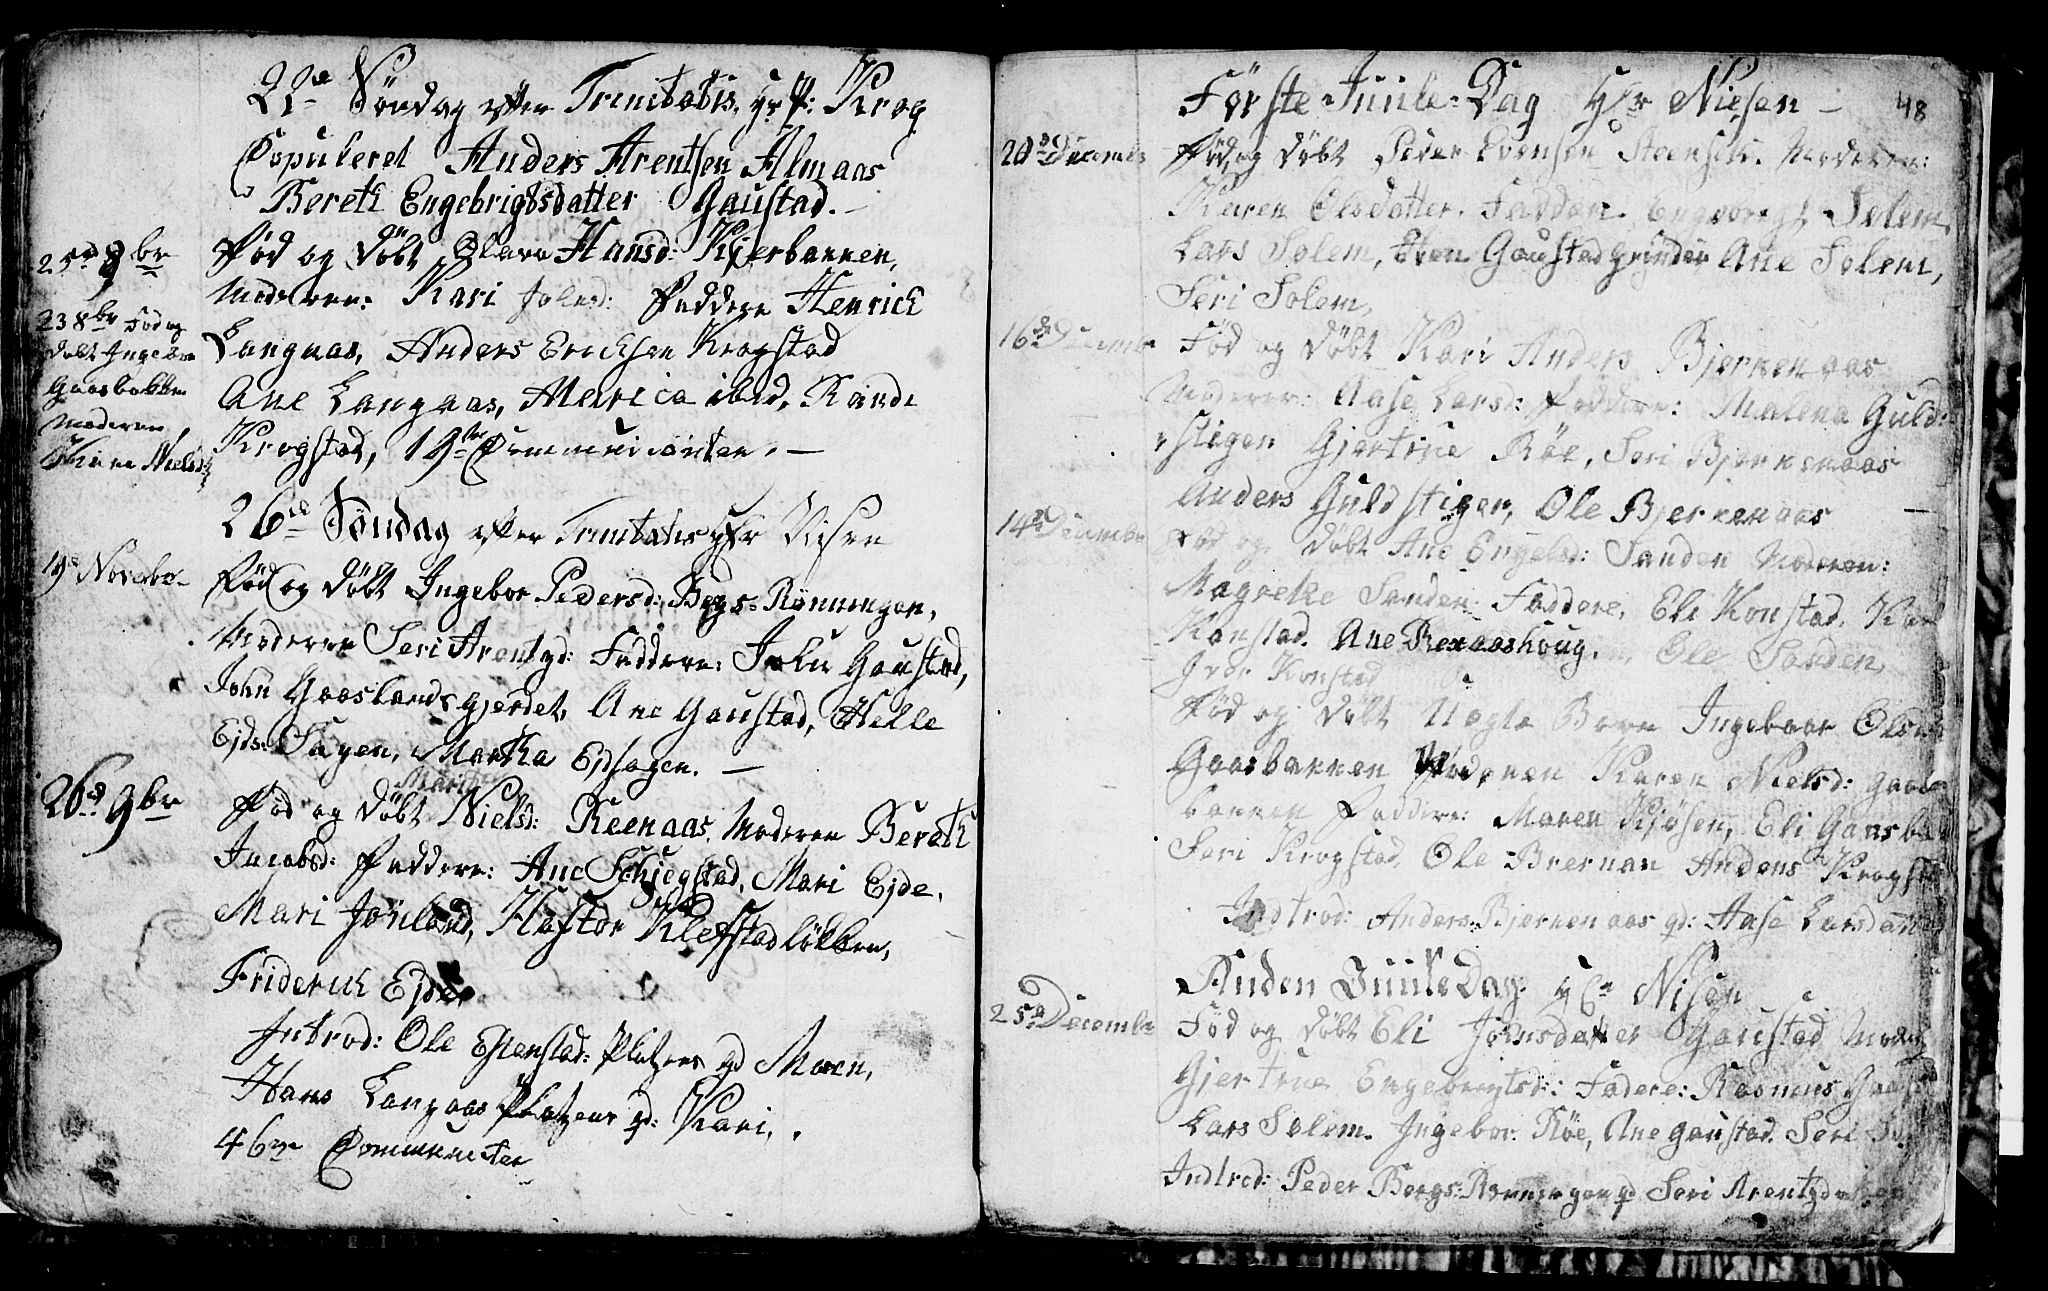 22de Söndag efter Trinitatis, Hr P: Krog
Copuleret Anders Arentsen Almaas
Beret Engebrigtsdatter Gaustad.
25d 8br
Fød og døbt Hansd: Kjerbakken,
Moderen: Kari Johnsd: Faddere Henrich
23 8br Fød og
døbt Ingebor
Gaasbakken
Moderen
Karen Nielsd
Langaas, Anders Ericksen Krogstad
Ane Langaas, Marica ibid, Randi
Krogstad, 19 Communicanter. —
26de Söndag efter Trinitatis Hr Nisen
19d Novebr
Fød og døbt Ingebor Pedersd: Bergs-Rønningen,
Moderen Seri Arentsd: Faddere: John Gaustad,
John Gaaslandsgjerdet, Ane Gaustad, Helle
Ejds: Sagen, Martha Ejdsagen. —
26d 9br
Marit
Fød og døbt Nielsd: Reenaas. Moderen Bereth
Jacobsd: Faddere: Ane Schjegstad, Mari Ejde,
Mari Jonland, Hastor Klefstadløkken,
Friderich Ejde
Introd: Ole Esienstad: Platzen qd Maren,
Hans Langaas Platzen qd: Kari,
46 Communicter
Første Juule-Dag Hr Niesen — 48
20d Decemb
Fød og døbt Peder Evensen Moderen:
Karen Olsdatter. Fadder. Engebrigt Solem
Lars Solem, Even Gaustadgrinder Ane Solem,
Seri Solem,
16d Decemb
Fød og døbt Kari Anders Bjerkenaas
Moderen: Aase Lars: Faddere: Malena Guld-
stigen Gjertrue Røe, Seri Bjerkenaas
Anders Guldstigen, Ole Bjerkenaas
14d Decembr
Fød og døbt Ane Engelsd: Sanden Moderen:
Magrete Sanden: Faddere, Eli Konstad, Kar
Konstad. Ane Rexaashoug. Ole Sanden,
Iver Konstad
Fød og døbt Uægte Barn Ingeboer Olsd
Gaasbakken Moderen Karen Nielsd: Gaas
bakken Faddere: Maren Kjøsen, Eli Gaasba
Seri Krogstad, Ole Brernan Anders Krogst
Indtrod: Anders Bjerkenaas qd: Aase Larsdat
Anden Juule Dag: Hr Nisen
25d Decembr
Fød og døbt Eli Johnsdatter Gaustad Moder
Gjertrue Engebregtsd: Fadere: Rasmus Gaust
Lars Solem. Ingebor Røe, Ane Gaustad. Seri
Indtrod: Peder Bergs: Rønningen qd Seri Arentzd